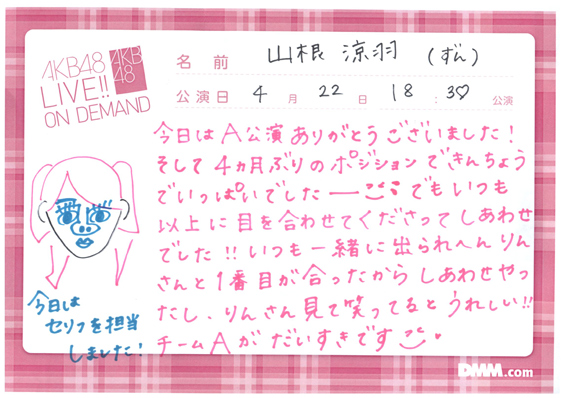 AKB48
LIVE!!
ON DEMAND
AKB
48
名前 山根 涼羽 (ずん)
公演日 4月22日 18:30♡公演
今日はA公演ありがとうございました!
そして4ヵ月ぶりのポジションできんちょう
でいっぱいでした でもいつも
以上に目を合わせてくださってしあわせ
でした!!いつも一緒に出られへんりん
さんと1番目が合ったからしあわせやっ
たし、りんさん見て笑ってるとうれしい!!
チームAがだいすきです
今日は
セリフを担当
しました!
DMM.com